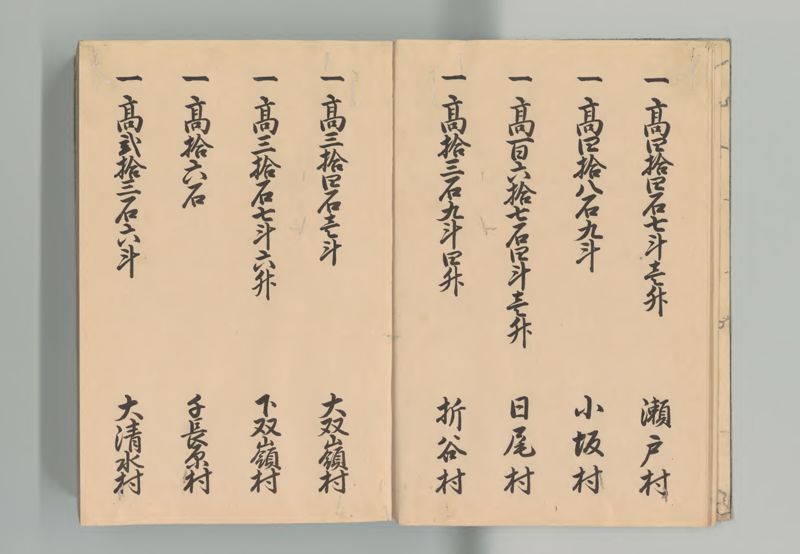 一高四拾四石七斗壱升 瀬戸村
一高四拾八石九斗 小坂村
一高百六拾七石四斗壱升 日尾村
一高拾三石九斗四升 折谷村
一高三拾四石壱斗 大双嶺村
一高三拾石七斗六升 下双嶺村
一高拾六石 千長原村
一高弐拾三石六斗 大清水村